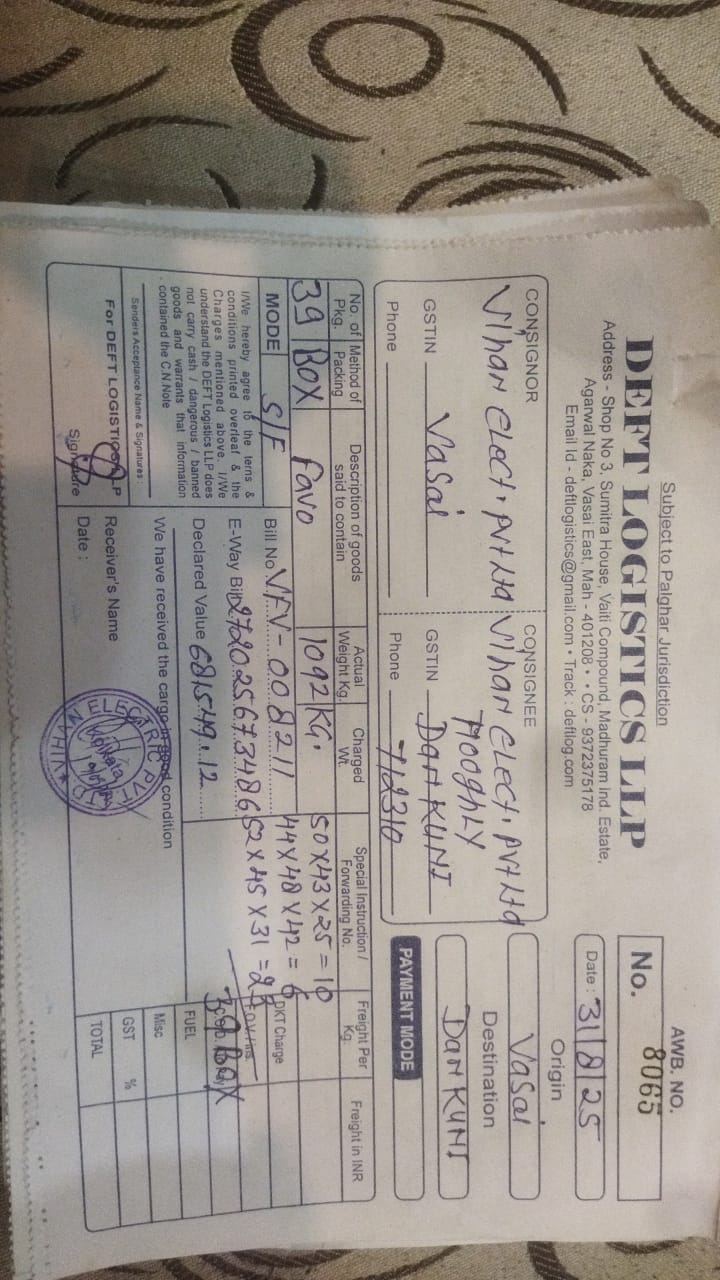 Subject to Palghar Jurisdiction
DEFT LOGISTICS LLP
Address - Shop No 3, Sumitra House, Vaiti Compound, Madhuram Ind. Estate,
Agarwal Naka, Vasai East, Mah - 401208 • • CS - 9372375178
Email Id - deftlogistics@gmail.com • Track : deftlog.com
AWB. NO.
No. 8065
Date : 31/8/25
Origin
Vasai
Destination
DanKUNI
PAYMENT MODE
CONSIGNOR
Vihan Elect. Pvt Ltd
GSTIN Vasai
Phone
CONSIGNEE
Vihan Elect. Pvt Ltd
HooghLY
GSTIN DanKUNI
Phone 712310
No. of Pkg. Method of Packing Description of goods said to contain Actual Weight Kg. Charged Wt. Special Instruction / Forwarding No. Freight Per Kg. Freight in INR
39 BOX Favo 1092 KG. 50X43X25 = 10
44X48X42 = 6
52X45X31 =
39 BOX
MODE S/F
Bill No VFV-008211
E-Way Bill 272025673486
Declared Value 681549.12
DKT Charge
FUEL
Misc
GST %
TOTAL
I/We hereby agree to the terns &
conditions printed overleaf & the
Charges mentioned above. I/We
understand the DEFT Logistics LLP does
not carry cash / dangerous / banned
goods and warrants that information
contained the C.N.Note
Senders Acceptance Name & Signatures
For DEFT LOGISTICS LLP
Signature
We have received the cargo in good condition
Receiver's Name
Date :
VIHAN ELECTRIC PVT. LTD.
Kolkata